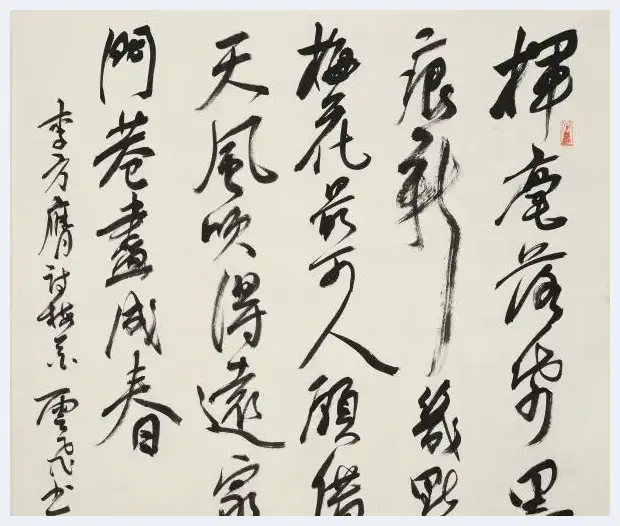 揮毫落帋墨
痕新幾點
梅花最可人願借
天風吹得遠家
門巷盡成春
李方膺詩梅 雲飛书